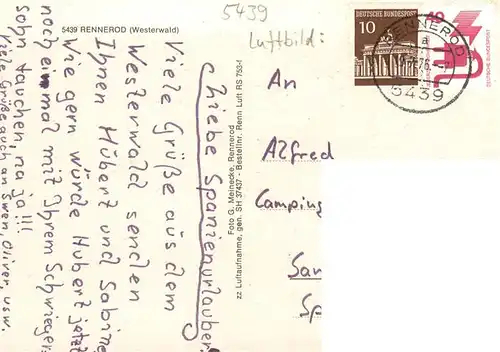 5439 RENNEROD (Westerwald)
5439
Luftbild:
Liebe Spanienurlauber
Viele Grüße aus dem
Westerwald senden
Ihnen Hubert und Sabine
Wie gern würde Hubert jetzt
noch einmal mit Ihrem Schwieger-
sohn tauchen, na ja!!!
Viele Grüße auch an Swen, Oliver, usw.
Foto G. Meinecke, Rennerod
zz Luftaufnahme, gen. SH 37437 - Bestellnr. Renn Luft RS 753-f
DEUTSCHE BUNDESPOST
10
10
DEUTSCHE BUNDESPOST
RENNEROD
a
5439
An
Alfred
Camping
San
Sp